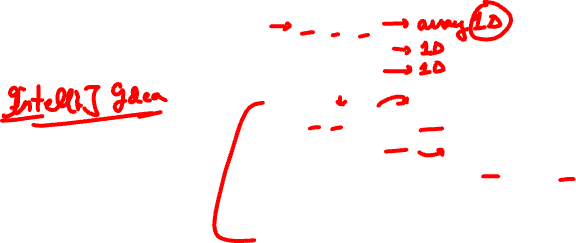 → _ _ _ → array 1D
→ 1D
→ 1D
IntelliJ Idea